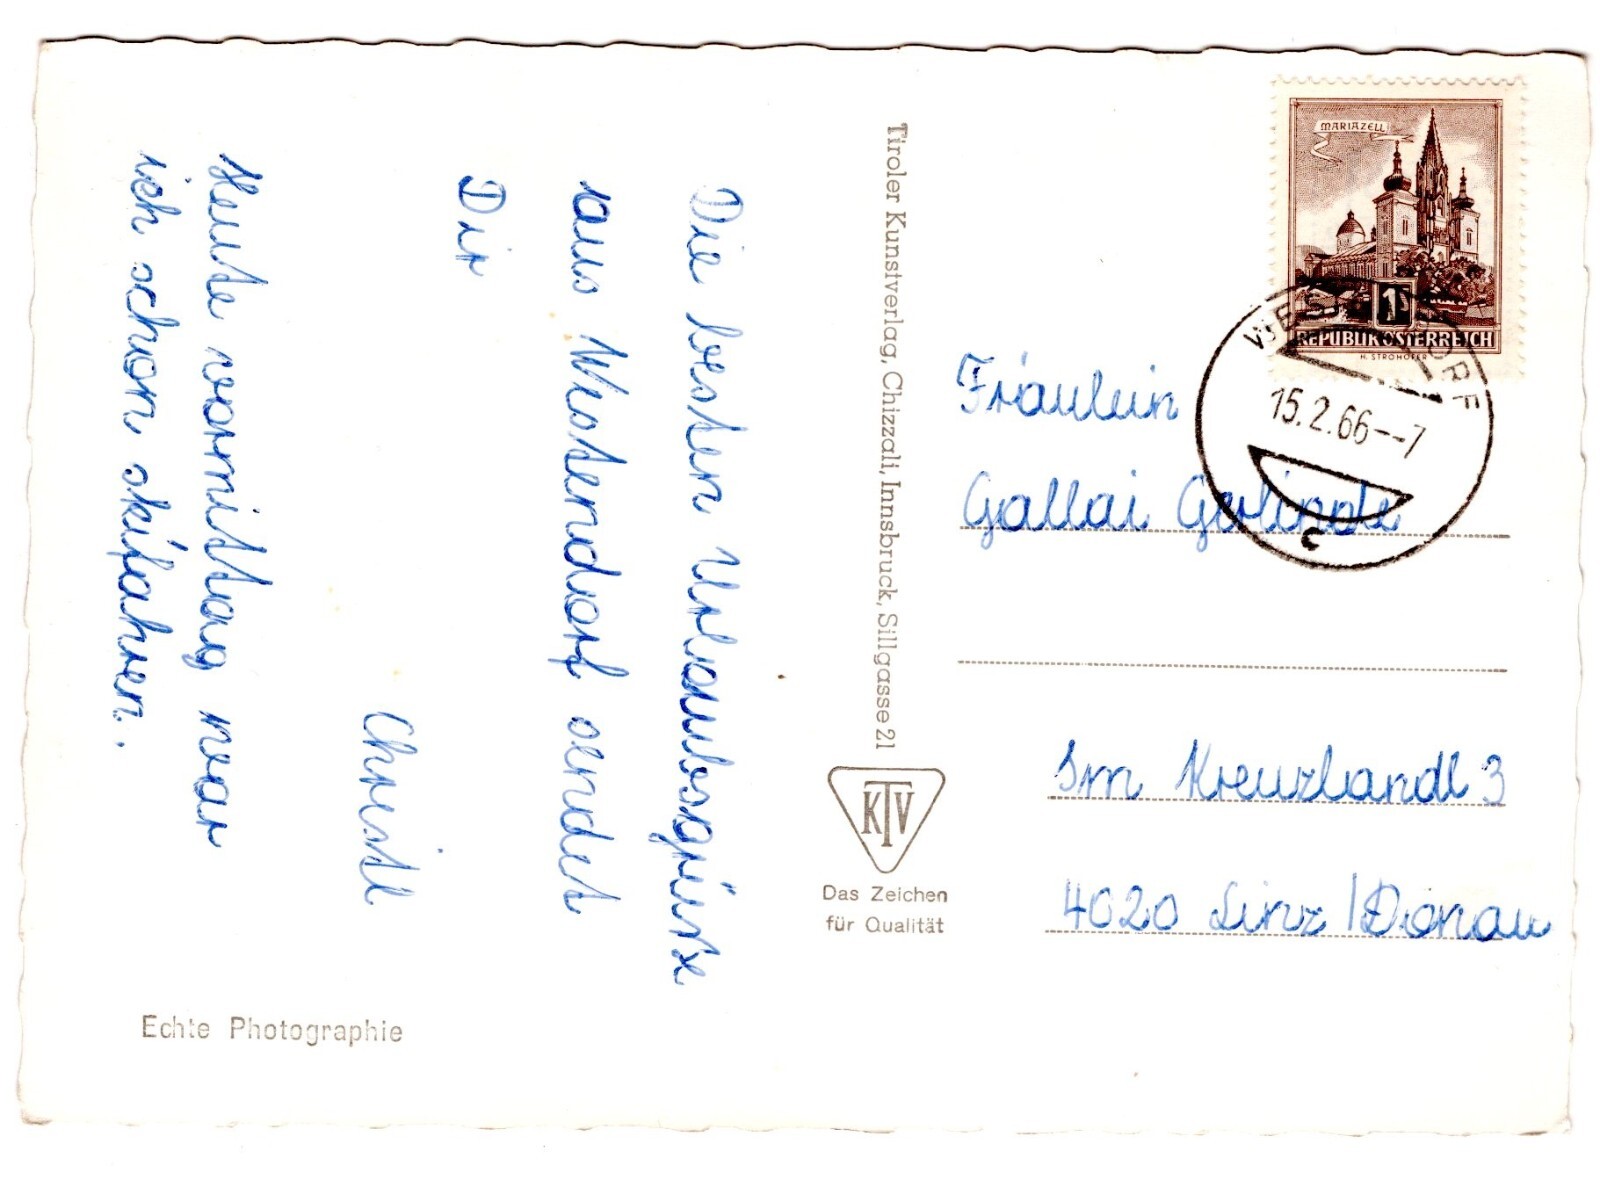 Die besten Urlaubsgrüße
aus Westendorf sendet
Dir
Christl
Heute vormittag war
ich schon skifahren.
Echte Photographie
Tiroler Kunstverlag, Chizzali, Innsbruck, Sillgasse 21
KTV
Das Zeichen
für Qualität
MARIAZELL
1S
REPUBLIK ÖSTERREICH
H. STROHOFER
WESTENDORF
15.2.66--7
c
Fräulein
Gallai Gerlinde
Im Kreuzlandl 3
4020 Linz/Donau